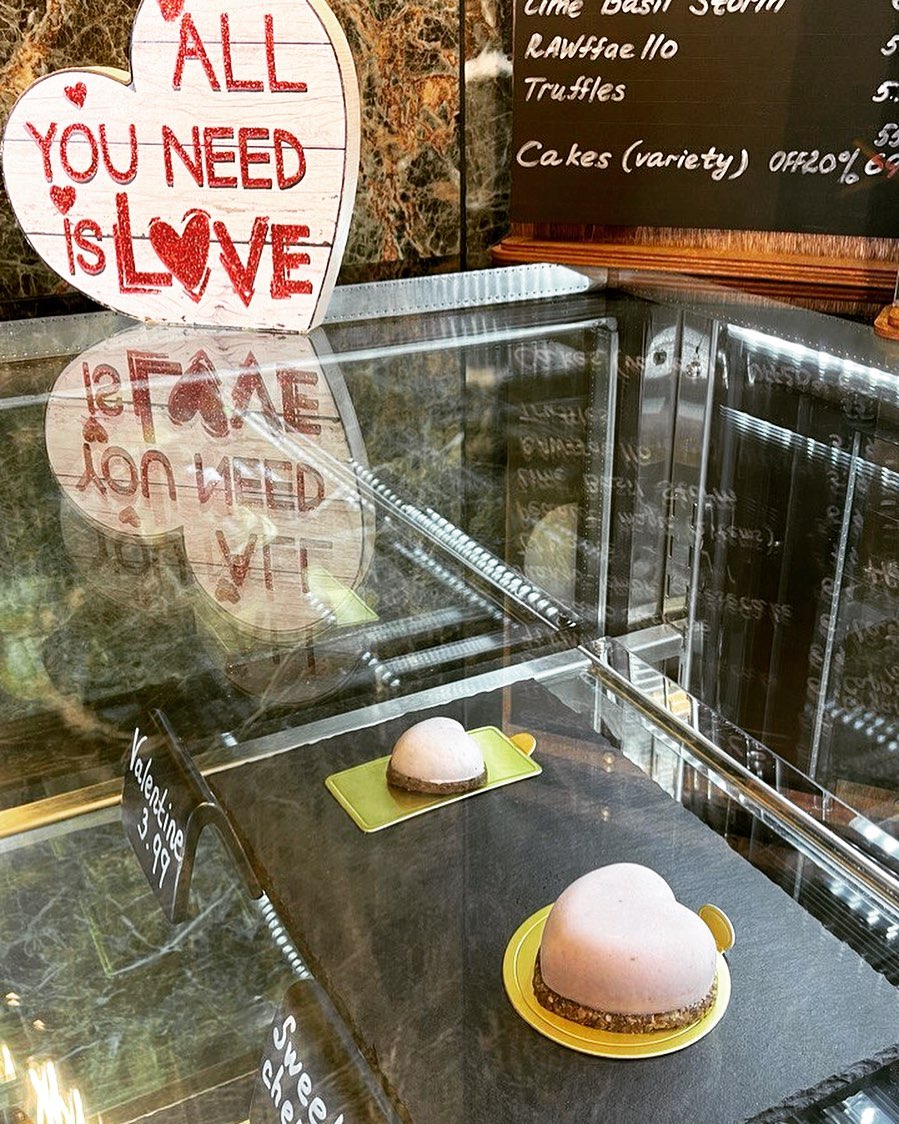 ALL
YOU NEED
IS LOVE
Lime Basil Storm
RAWffaello
Truffles
Cakes (variety) OFF20%
Valentine
3.99
Sweet